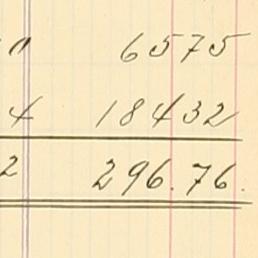 0 6575
4 18432
2 296.76.